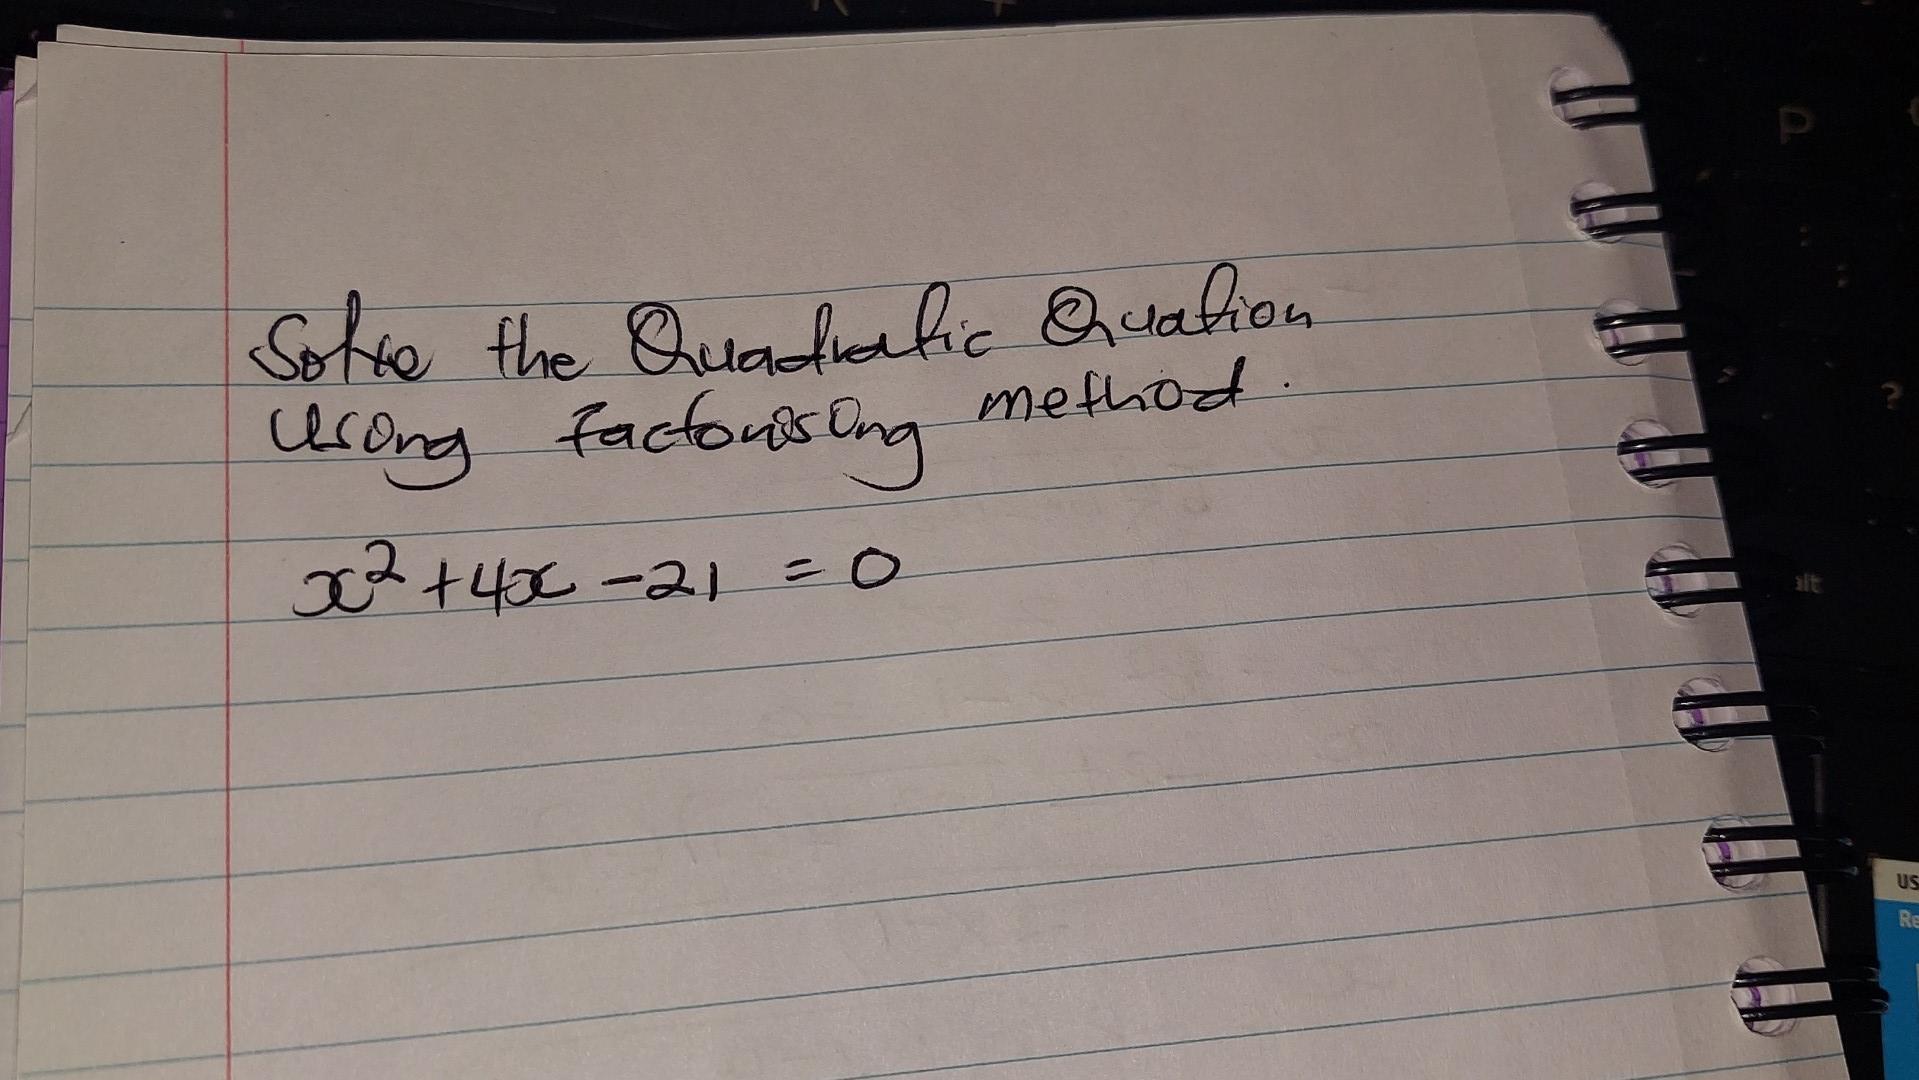 Solve the Quadratic Quation
Using factorising method.
x² + 4x - 21 = 0
P
?
alt
US
Re